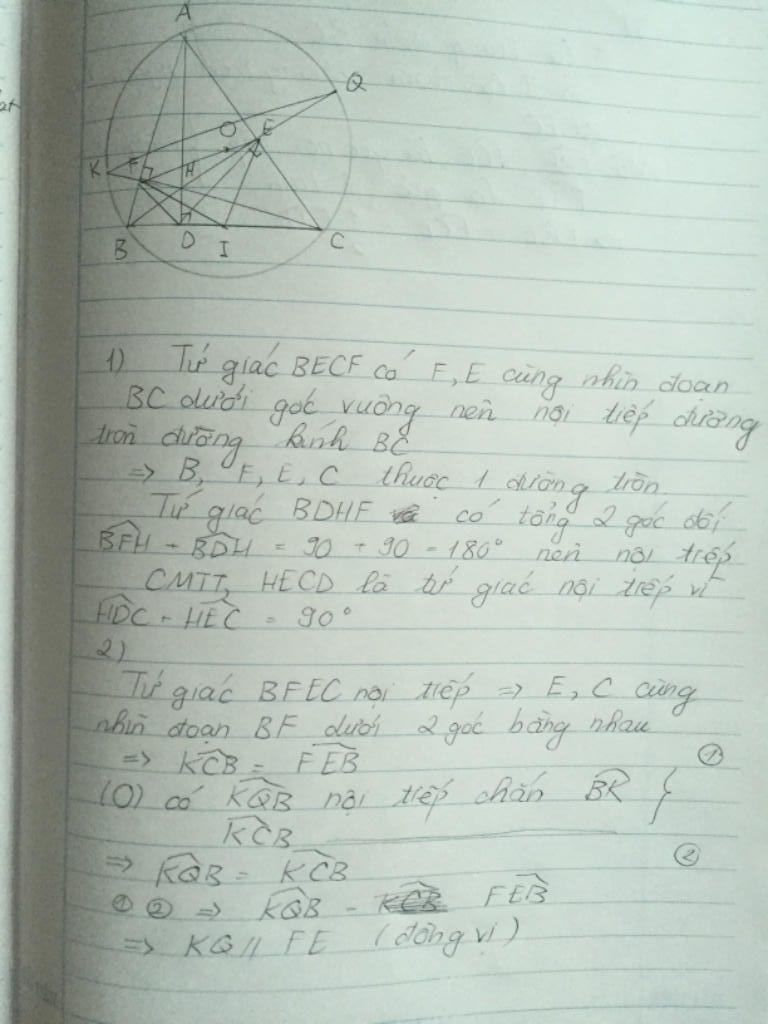 A
Q
O
E
K
F
H
B
D
I
C
1) Tứ giác BECF có F, E cùng nhìn đoạn
BC dưới góc vuông nên nội tiếp đường
tròn đường kính BC
=> B, F, E, C thuộc 1 đường tròn
Tứ giác BDHF có tổng 2 góc đối
BFH + BDH = 90 + 90 = 180° nên nội tiếp
CMTT, HECD là tứ giác nội tiếp vì
HDC = HEC = 90°
2)
Tứ giác BFEC nội tiếp => E, C cùng
nhìn đoạn BF dưới 2 góc bằng nhau
=> KCB = FEB ①
(O) có KQB nội tiếp chắn BK }
KCB
=> KQB = KCB ②
① ② => KQB = FEB
=> KQ // FE (đồng vị)